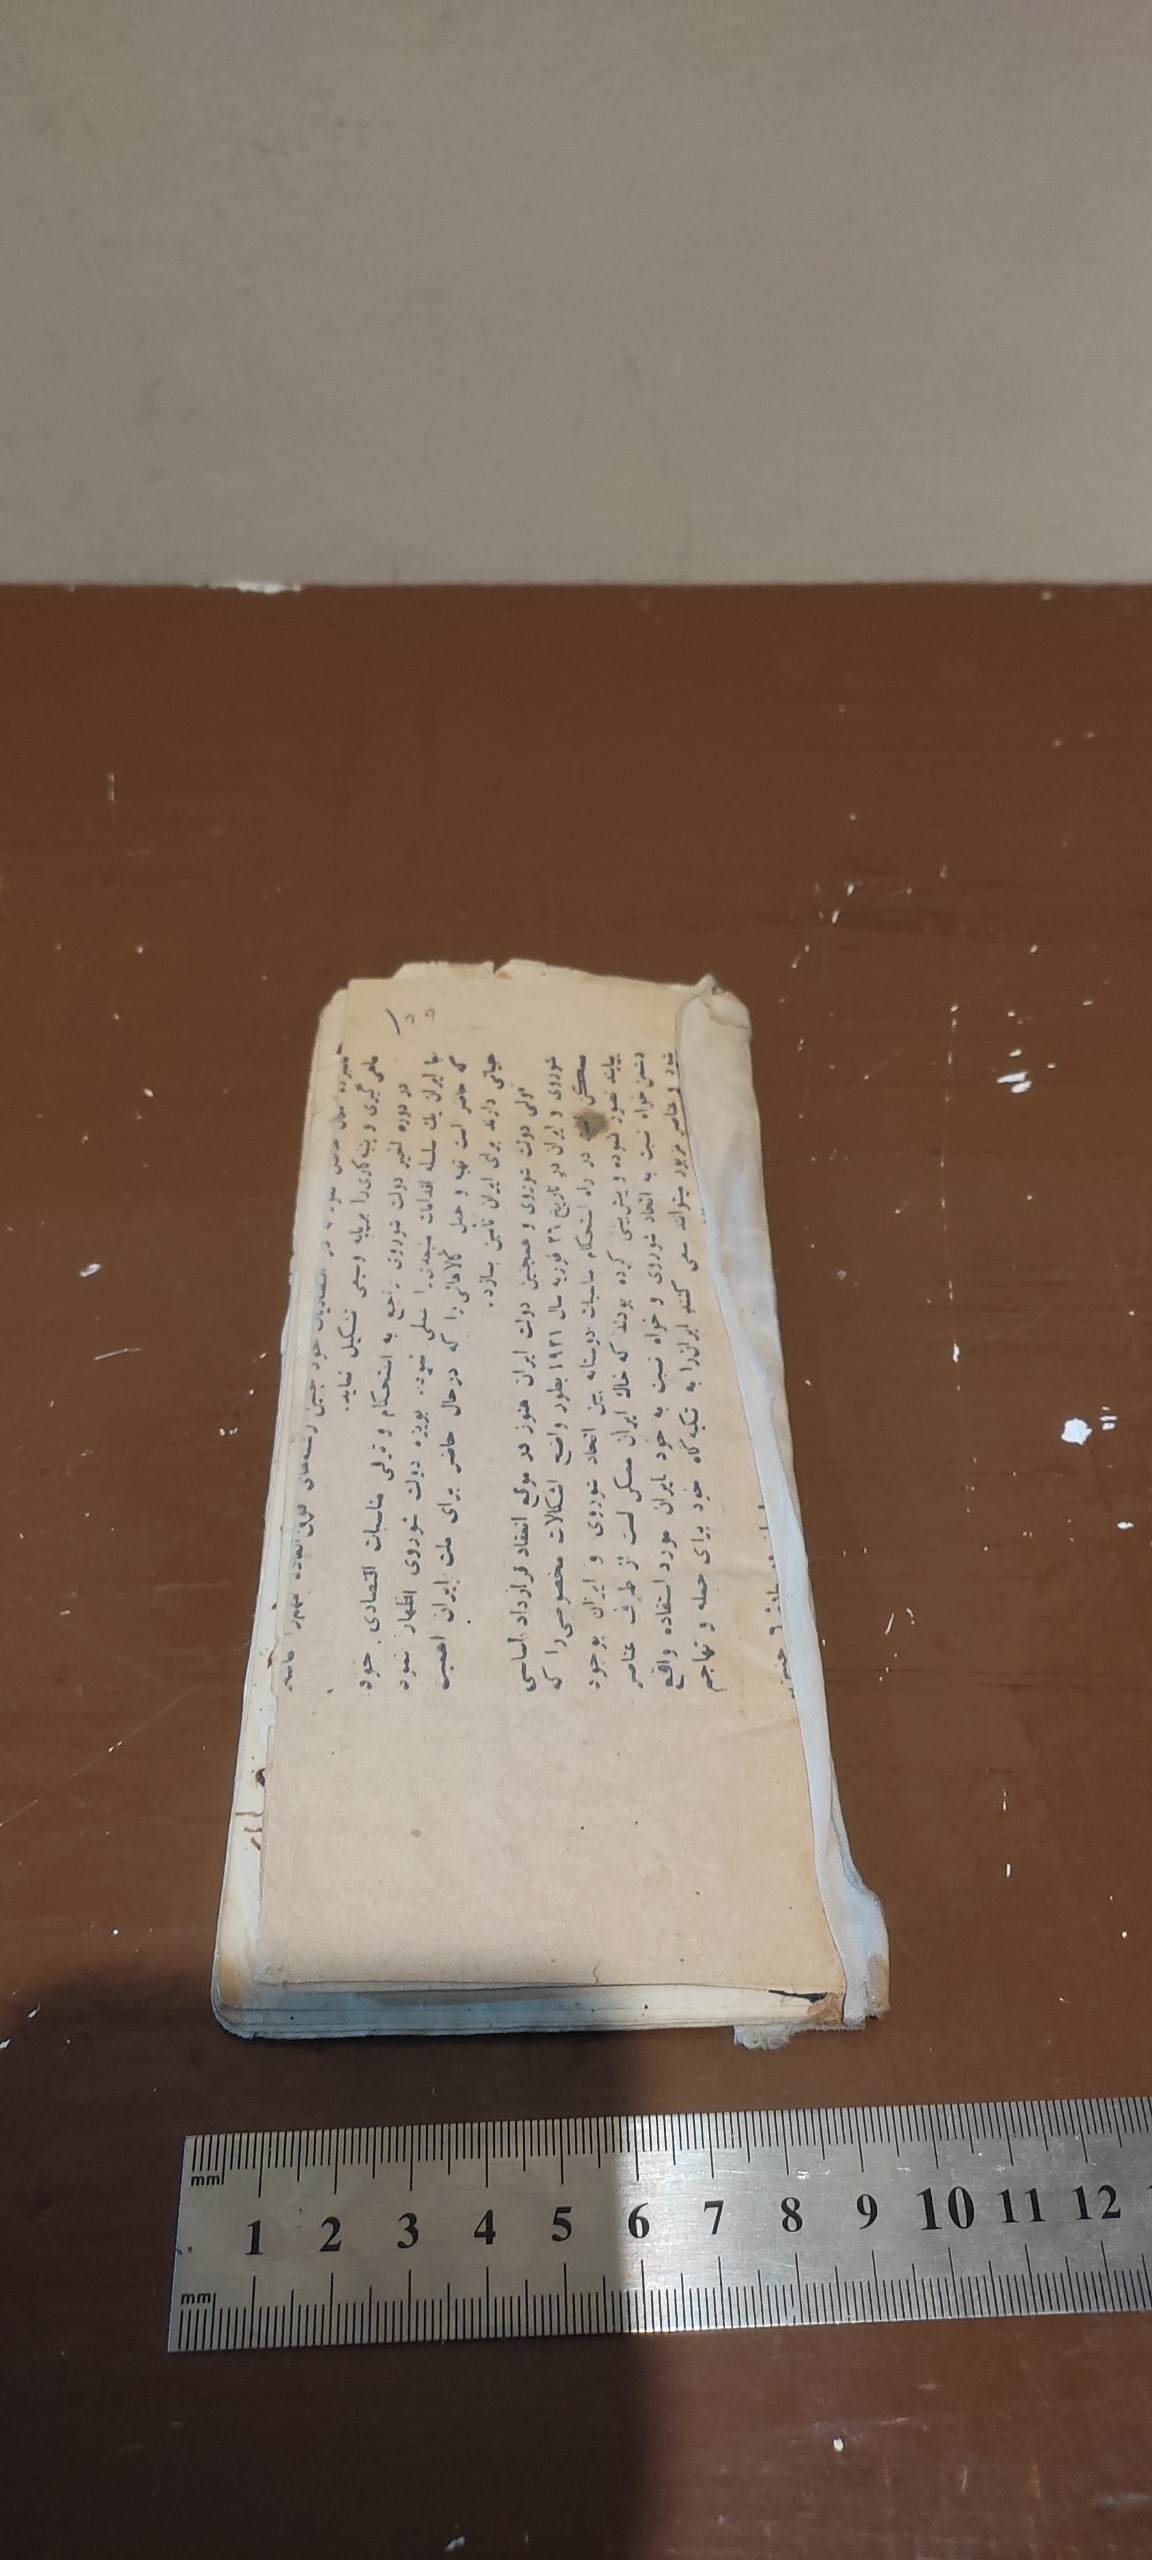 ماهی گیری و پنبه کاری را برپایه وسیعی تشکیل نماید.
در دوره اخیر دولت شوروی راجع به استحکام و ترقی مناسبات اقتصادی خود
با ایران یك سلسله اقدامات مفیدی را عملی نمود. بویژه دولت شوروی اظهار نمود
که حاضر است تهیه و حمل کالاهائی را که در حال حاضر برای ملت ایران اهمیت
حیاتی دارند برای ایران تأمین بسازد.
ولی دولت شوروی و همچنین دولت ایران هنوز در موقع انعقاد قرارداد اساسی
شوروی و ایران در تاریخ ۲٦ فوریه سال ۱۹۲۱ بطور واضح اشکالات مخصوصی را که
ممکن است در راه استحکام مناسبات دوستانه بین اتحاد شوروی و ایران بوجود
بیایند تصور نموده و پیش بینی کرده بودند که خاك ایران ممکن است از طرف عناصر
دشمن خواه نسبت به اتحاد شوروی و خواه نسبت به خود ایران مورد استفاده واقع
شود و عناصر مزبور میتوانند سعی کنند ایران را به تکیه گاه خود برای حمله و تهاجم
mm 1 2 3 4 5 6 7 8 9 10 11 12
mm